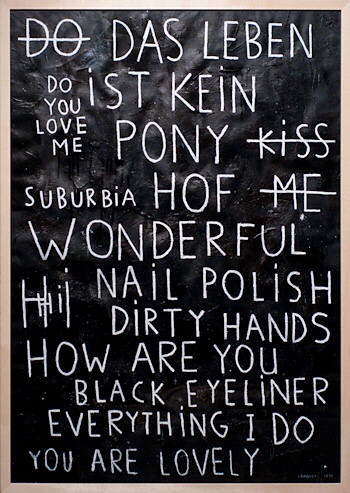 DO DAS LEBEN
DO YOU LOVE ME
iST KEiN
PONY KiSS
SUBURBiA HOF ME
WONDERFUL
NAiL POLiSH
DiRTY HANDS
HOW ARE YOU
BLACK EYELiNER
EVERYTHiNG I DO
YOU ARE LOVELY